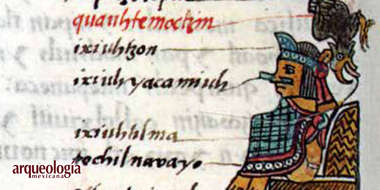 quauhtemoctzin
ixiuhtzon
ixiuhyacamiuh
ixiuhtilma
tochilnavayo
arqueología
mexicana